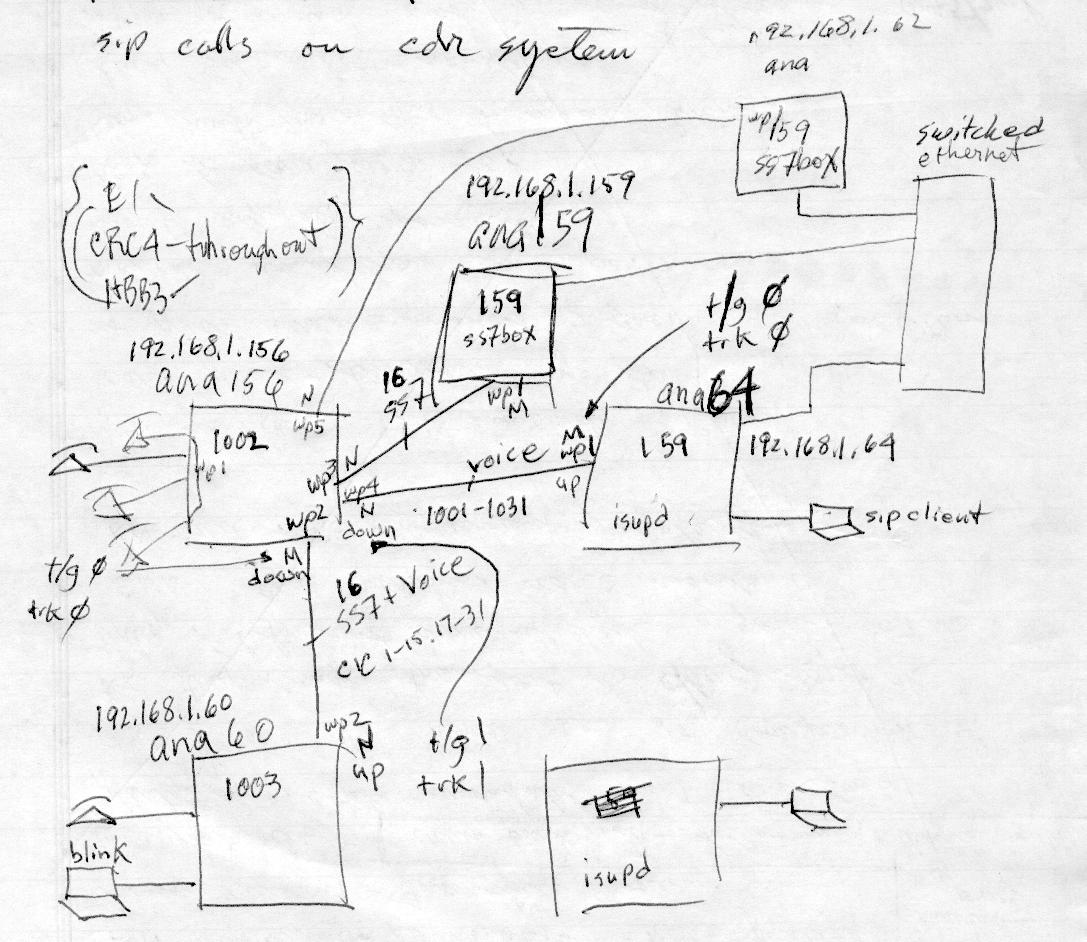 sip calls on cdr system
192.168.1.62
ana
wp1 159
ss7box
switched
ethernet
E1
CRC4-throughout
HBB3
192.168.1.159
ana159
159
ss7box
wp1
M
t/g Ø
trk Ø
192.168.1.156
ana156
N
wp5
1002
wp1
16
SS7
wp3 N
wp4
N
down
wp2
M
down
voice
1001-1031
M
wp1
up
ana64
159
isupd
192.168.1.64
sip client
t/g Ø
trk Ø
16
SS7 + Voice
CIC 1-15.17-31
192.168.1.60
ana60
wp2
N
up
t/g 1
trk 1
1003
blink
isupd